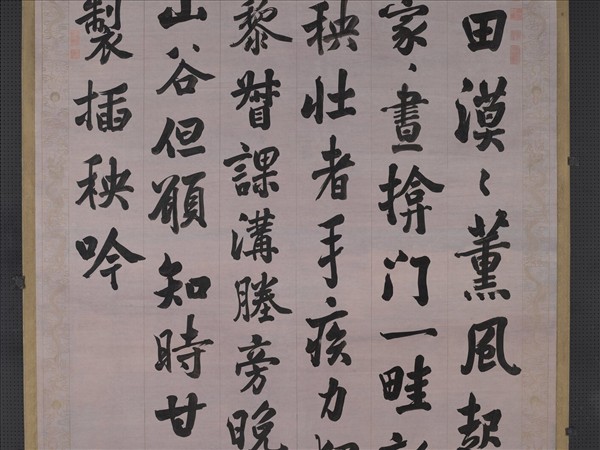 田漠〻薰風起
家〻晝揜门一畦新
秧壯者手疾力
黎督課溝塍旁晚
山谷但願知時甘
製插秧吟